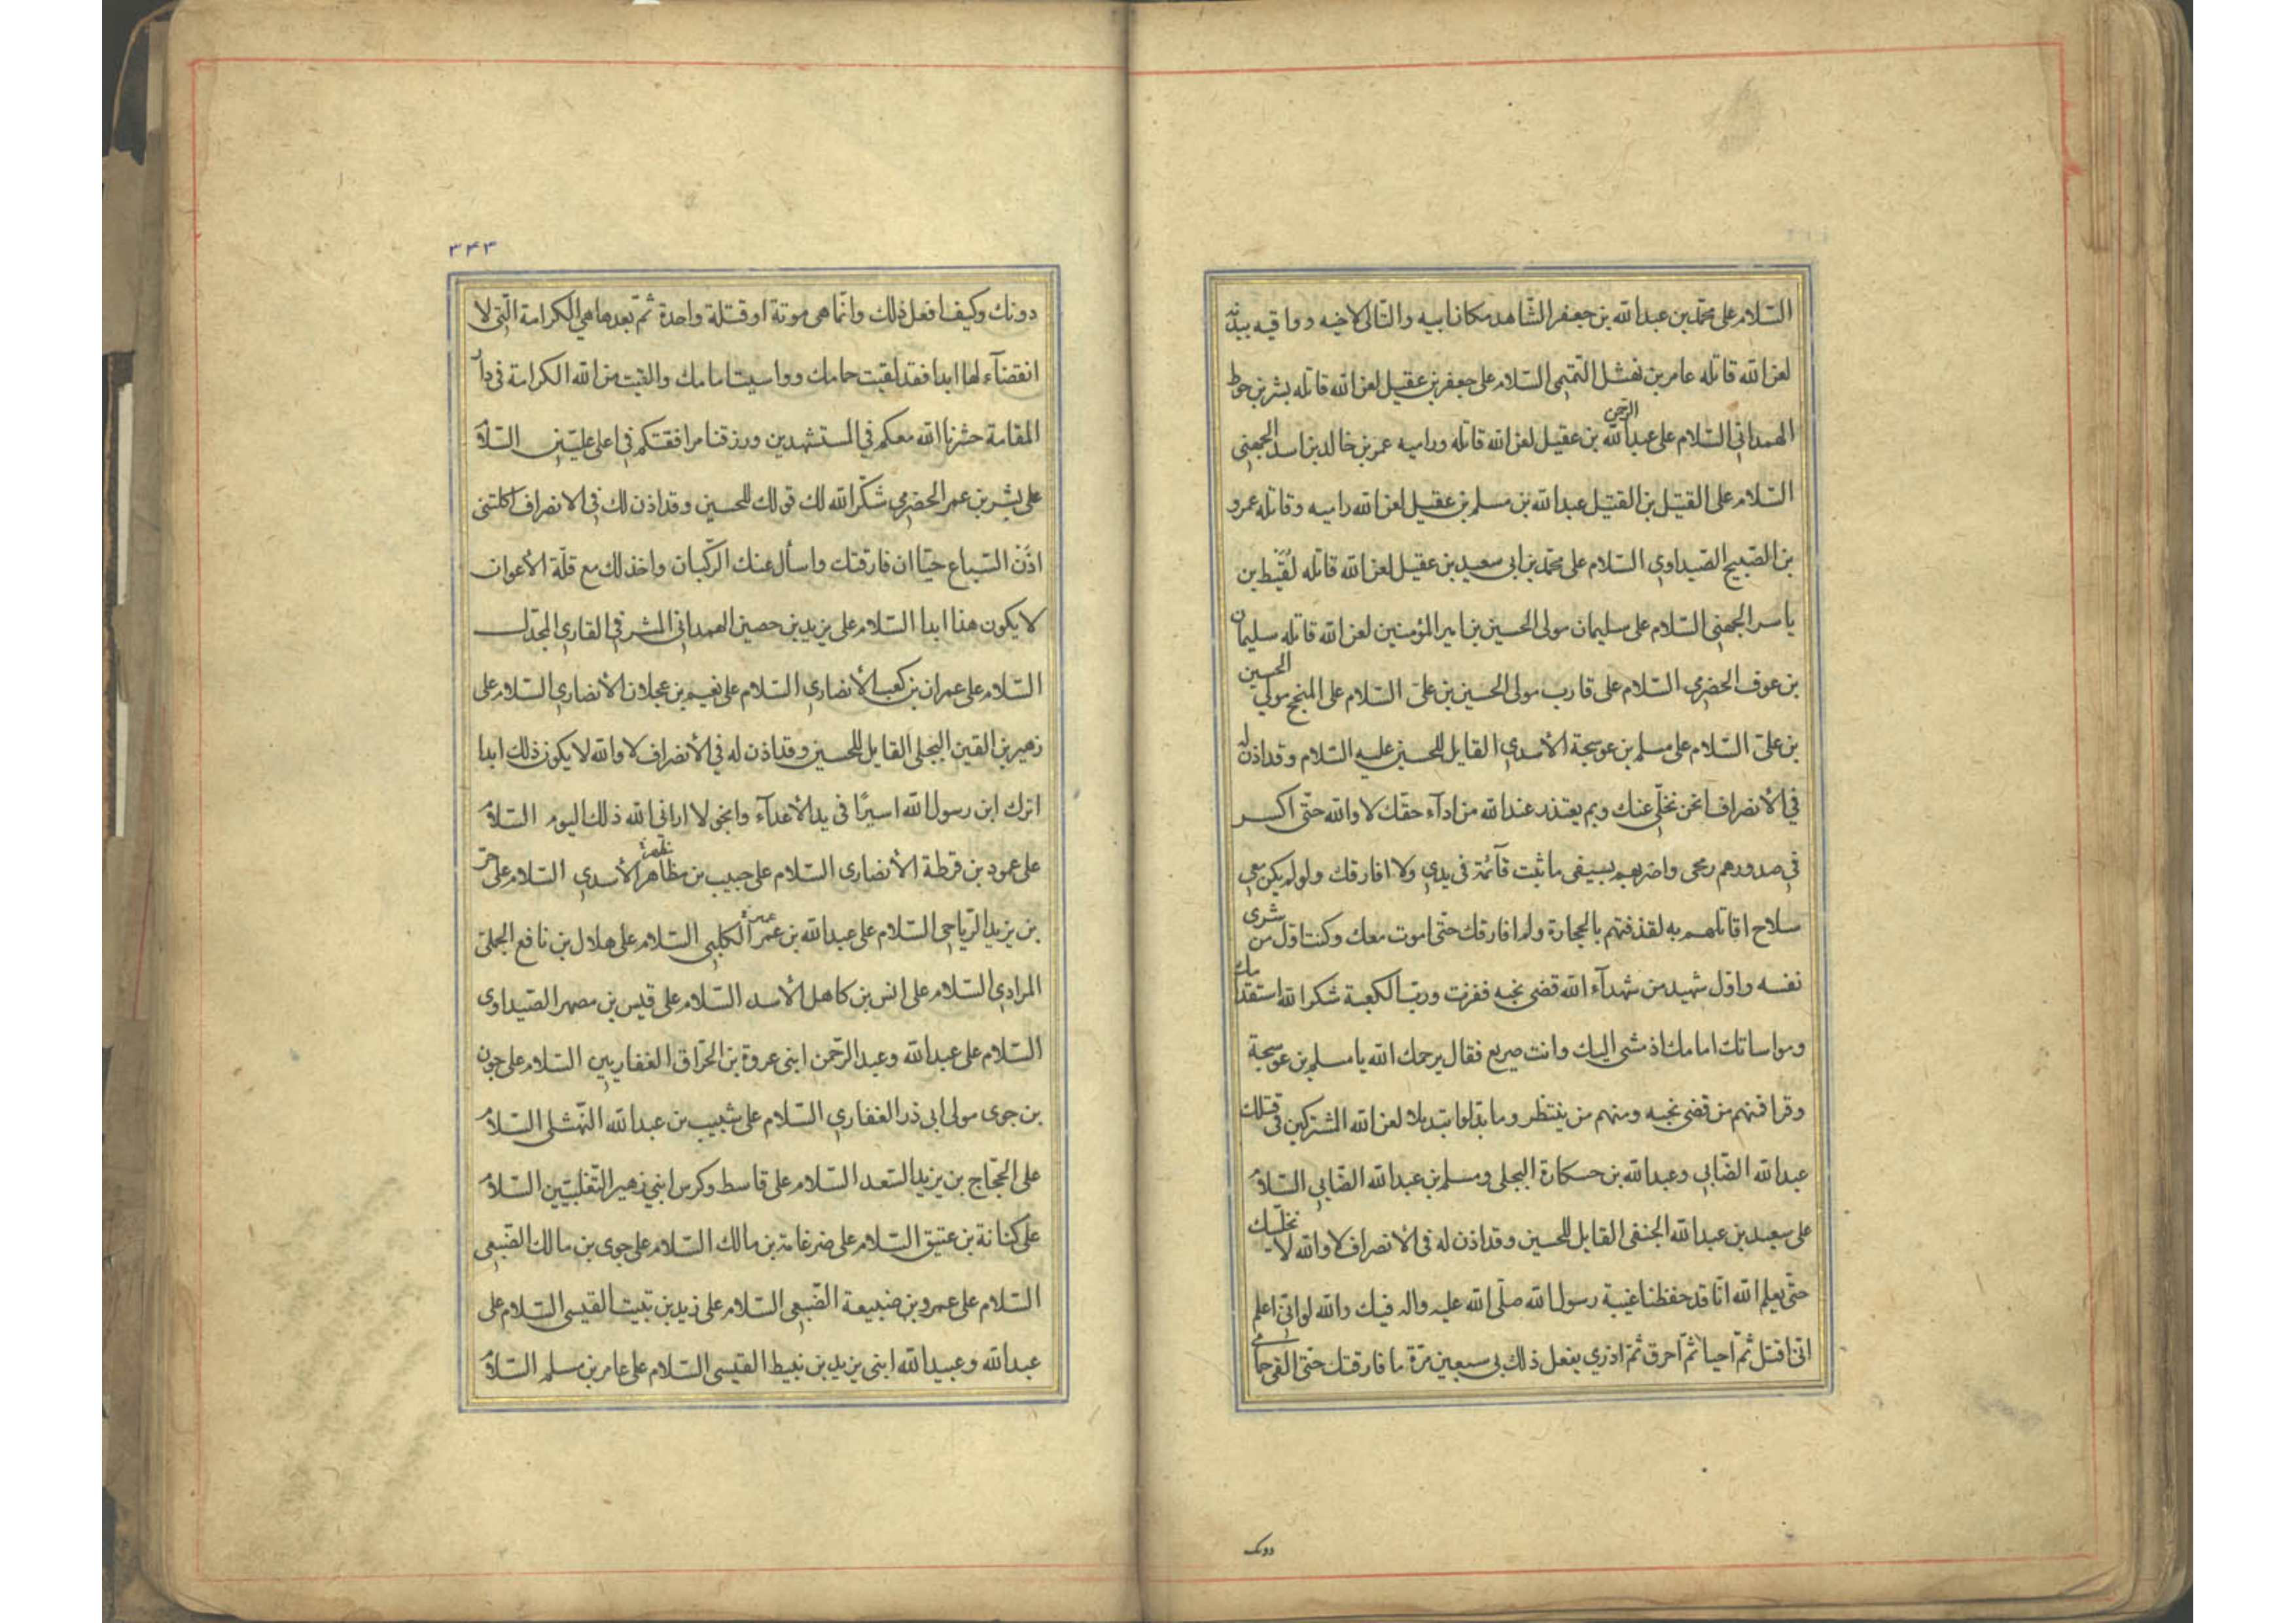 السّلام على محمّد بن عبدالله بن جعفر الشّاهد مكان ابيه والتّالى لاخيه وواقيه ببدنه
لعن الله قاتله عامر بن نهشل التّميمى السّلام على جعفر بن عقيل لعن الله قاتله بشر بن حوط
الهمدانى السّلام على عبدالله الرّحمن بن عقيل لعن الله قاتله وراميه عمر بن خالد بن اسد الجهنى
السّلام على القتيل بن القتيل عبدالله بن مسلم بن عقيل لعن الله راميه وقاتله عمرو
بن الصّبيح الصّيداوى السّلام على محمّد بن ابى سعيد بن عقيل لعن الله قاتله لقيط بن
ياسر الجهنى السّلام على سليمان مولى الحسين بن امير المؤمنين لعن الله قاتله سليمان
بن عوف الحضرمى السّلام على قارب مولى الحسين بن علىّ السّلام على المنجح مولى الحسين
بن علىّ السّلام على مسلم بن عوسجة الأسدى القايل للحسين عليه السّلام وقد اذن له
في الأنصراف انحن نخلّى عنك وبم يعتذر عند الله من ادآء حقّك لا والله حتّى اكسر
في صدورهم رمحى واضربهم بسيفى ما ثبت قآئمه فى يدى ولا افارقك ولو لم يكن معى
سلاح اقاتلهم به لقذفتهم بالحجارة ولم افارقك حتّى اموت معك وكنت اوّل من شرى
نفسه واوّل شهيد من شهدآء الله قضى نحبه ففزت وربّ الكعبة شكر الله استقدامك
ومواساتك امامك اذ مشى اليك وانت صريع فقال يرحمك الله يا مسلم بن عوسجة
وقرا فمنهم من قضى نحبه ومنهم من ينتظر وما بدّلوا تبديلا لعن الله المشتركين فى قتلك
عبدالله الضّبابى وعبدالله بن حسكارة البجلى ومسلم بن عبدالله الضّبابى السّلام
على سعيد بن عبدالله الحنفى القايل للحسين وقد اذن له فى الأنصراف لا والله لا نخلّيك
حتّى يعلم الله انّا قد حفظنا غيبة رسول الله صلّى الله عليه واله فيك والله لو انّى اعلم
انّى اقتل ثمّ احيا ثمّ احرق ثمّ اذرى يفعل ذلك بى سبعين مرّة ما فارقتك حتّى القى حمامى
دونك
٣۴٣
دونك وكيف افعل ذلك وانّما هى موتة او قتلة واحدة ثمّ بعدها هى الكرامة الّتى لا
انقضآء لها ابدا فقد لقيت حمامك وواسيت امامك والقيت من الله الكرامة فى دار
المقامة حشرنا الله معكم فى المستشهدين ورزقنا مرافقتكم فى اعلى عليّين السّلام
على بشر بن عمر الحضرمى شكر الله لك قولك للحسين وقد اذن لك فى الانصراف اكلتنى
اذن السّباع حيّا ان فارقتك واسأل عنك الرّكبان واخذلك مع قلّة الأعوان
لا يكون هذا ابدا السّلام على يزيد بن حصين الهمدانى المشرفى القارى المجدّل
السّلام على عمران بن كعب الأنصارى السّلام على نعيم بن عجلان الأنصارى السّلام على
زهير بن القين البجلى القايل للحسين وقد اذن له فى الأنصراف لا والله لا يكون ذلك ابدا
اترك ابن رسول الله اسيرًا فى يد الأعدآء وانجو لا ارانى الله ذلك اليوم السّلام
على عمود بن قرطة الأنصارى السّلام على حبيب بن مظاهر الأسدى السّلام على حرّ
بن يزيد الرّياحى السّلام على عبدالله بن عمر الكلبى السّلام على هلال بن نافع الجملىّ
المرادى السّلام على انس بن كاهل الأسد السّلام على قيس بن مصهر الصّيداوى
السّلام على عبدالله وعبد الرّحمن ابنى عروة بن الحرّاق الغفاريين السّلام على جون
بن جوى مولى ابى ذر الغفارى السّلام على شبيب بن عبدالله النّهشلى السّلام
على الحجّاج بن يزيد السّعد السّلام على قاسط وكرس ابنى زهير التّغلبيّين السّلام
على كنانة بن عتيق السّلام على ضرغامة بن مالك السّلام على جوى بن مالك الضّبعى
السّلام على عمرو بن ضبيعة الضّبعى السّلام على زيد بن ثبيت القيسى السّلام على
عبدالله وعبيدالله ابنى يزيد بن نبيط القيسى السّلام على عامر بن مسلم السّلام